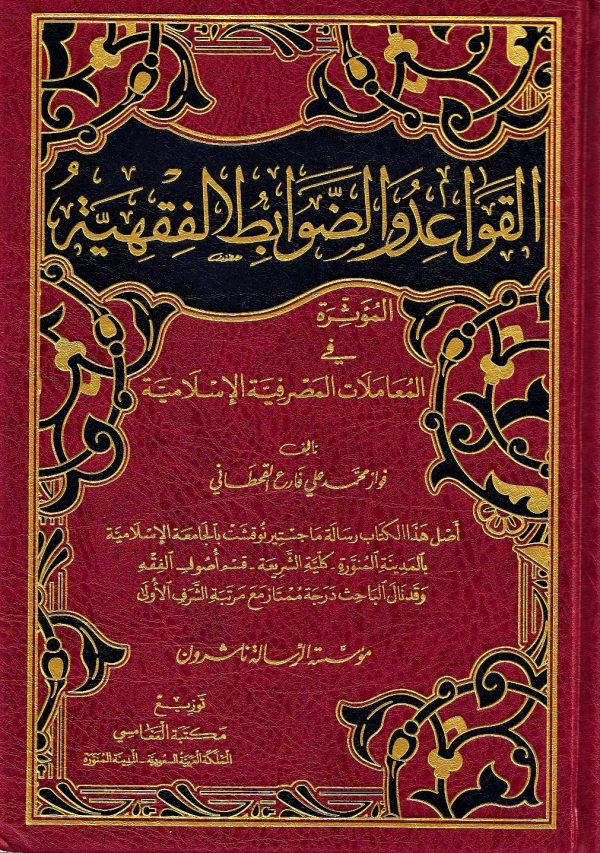 القَوَاعِدُ وَالضَّوَابِطُ الفِقْهِيَّةُ
المُؤَثِّرَة
في
المُعَامَلَات المَصْرِفِيَّة الإِسْلَامِيَّة
تأليف
فواز محمد علي فارع القحطاني
أَصْل هَذَا الكِتَاب رِسَالَة مَاجستير نُوقِشَتْ بِالجَامِعَة الإِسْلَامِيَّة
بِالمَدِينَة المُنَوَّرَة - كُلِّيَة الشَّرِيعَة - قسم أُصُول الفِقْه
وَقَد نَالَ البَاحِث دَرَجَة مُمْتَاز مَعَ مَرتبَة الشَّرَف الأُولَى
مؤسسة الرسالة ناشرون
توزيع
مكتبة المغامسي
المملكة العربية السعودية - المدينة المنورة